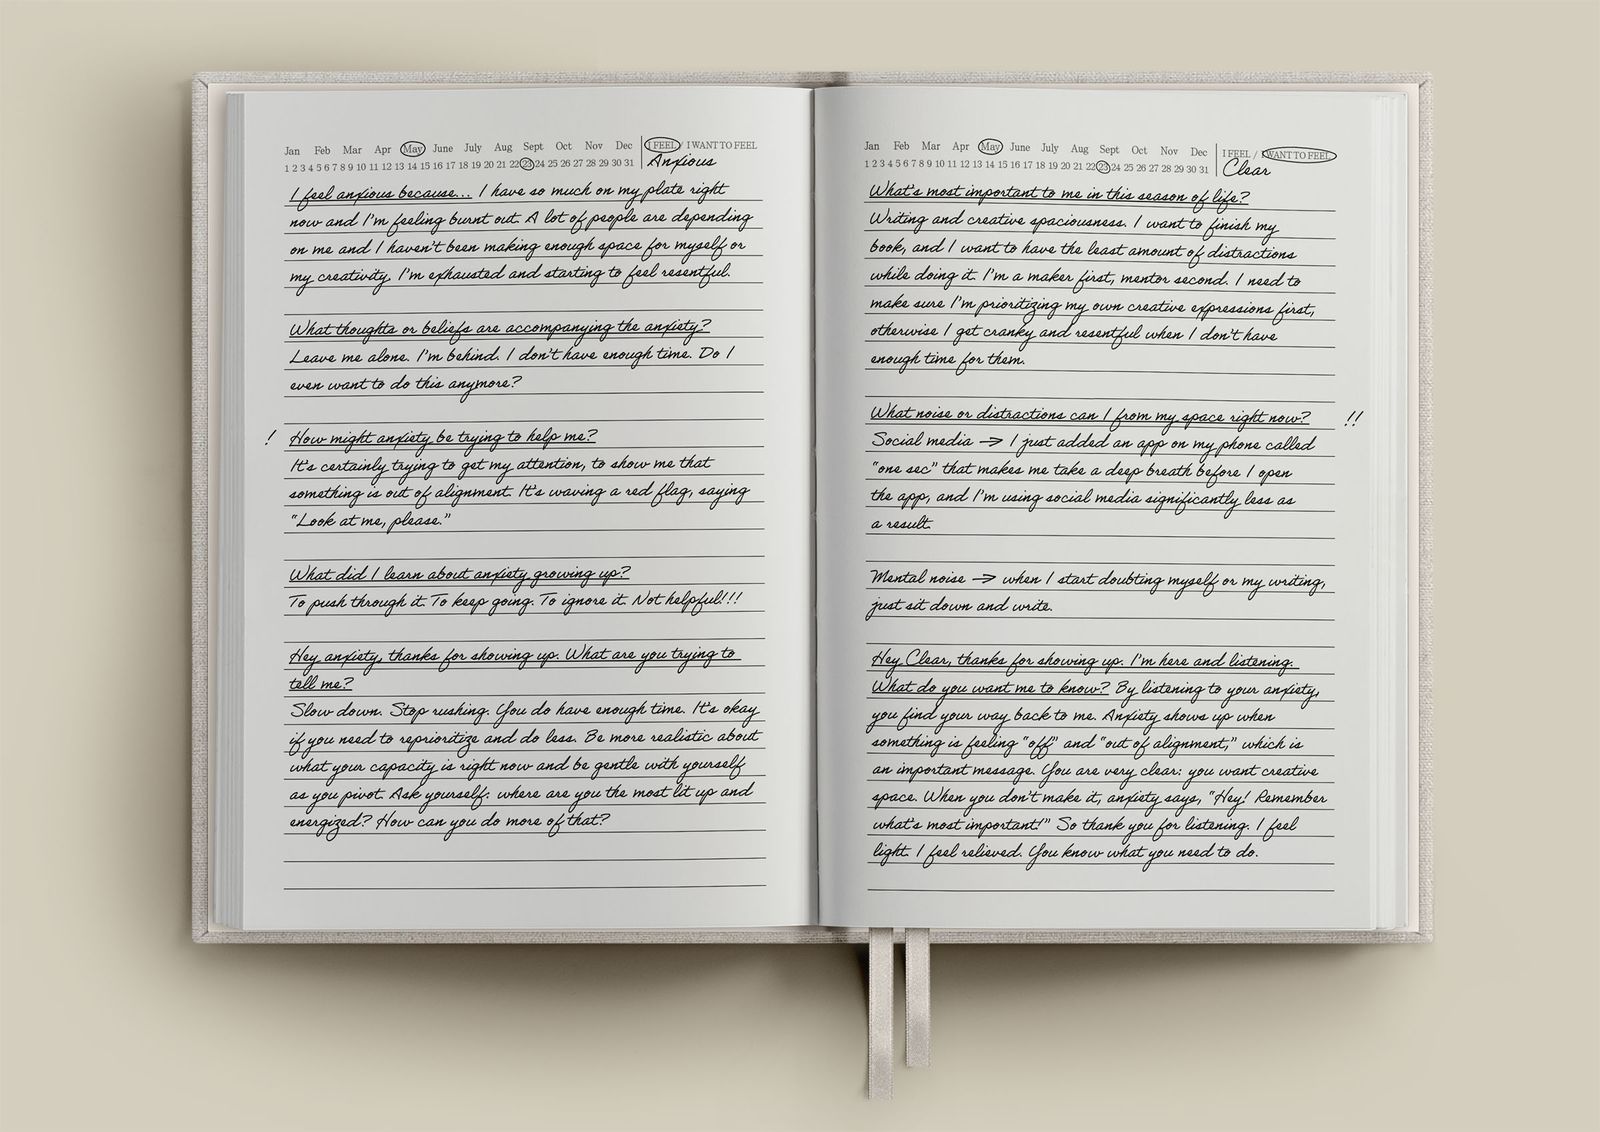 Jan Feb Mar Apr May June July Aug Sept Oct Nov Dec I FEEL / I WANT TO FEEL
1 2 3 4 5 6 7 8 9 10 11 12 13 14 15 16 17 18 19 20 21 22 23 24 25 26 27 28 29 30 31 Anxious
I feel anxious because... I have so much on my plate right
now and I'm feeling burnt out. A lot of people are depending
on me and I haven't been making enough space for myself or
my creativity. I'm exhausted and starting to feel resentful.
What thoughts or beliefs are accompanying the anxiety?
Leave me alone. I'm behind. I don't have enough time. Do I
even want to do this anymore?
! How might anxiety be trying to help me?
It's certainly trying to get my attention, to show me that
something is out of alignment. It's waving a red flag, saying
"Look at me, please."
What did I learn about anxiety growing up?
To push through it. To keep going. To ignore it. Not helpful!!!
Hey anxiety, thanks for showing up. What are you trying to
tell me?
Slow down. Stop rushing. You do have enough time. It's okay
if you need to reprioritize and do less. Be more realistic about
what your capacity is right now and be gentle with yourself
as you pivot. Ask yourself: where are you the most lit up and
energized? How can you do more of that?
Jan Feb Mar Apr May June July Aug Sept Oct Nov Dec I FEEL / I WANT TO FEEL
1 2 3 4 5 6 7 8 9 10 11 12 13 14 15 16 17 18 19 20 21 22 23 24 25 26 27 28 29 30 31 Clear
What's most important to me in this season of life?
Writing and creative spaciousness. I want to finish my
book, and I want to have the least amount of distractions
while doing it. I'm a maker first, mentor second. I need to
make sure I'm prioritizing my own creative expressions first,
otherwise I get cranky and resentful when I don't have
enough time for them.
What noise or distractions can I from my space right now? !!
Social media → I just added an app on my phone called
"one sec" that makes me take a deep breath before I open
the app, and I'm using social media significantly less as
a result.
Mental noise → when I start doubting myself or my writing,
just sit down and write.
Hey Clear, thanks for showing up. I'm here and listening.
What do you want me to know? By listening to your anxiety,
you find your way back to me. Anxiety shows up when
something is feeling "off" and "out of alignment," which is
an important message. You are very clear: you want creative
space. When you don't make it, anxiety says, "Hey! Remember
what's most important!" So thank you for listening. I feel
light. I feel relieved. You know what you need to do.